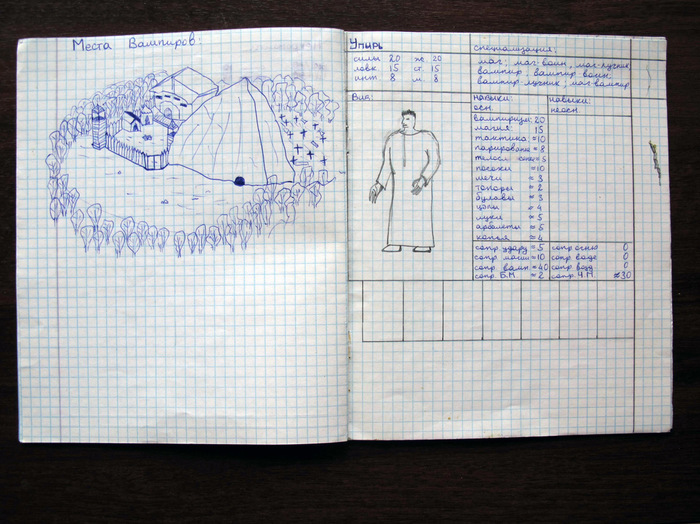 Места Вампиров:
Упырь
сила 20 ж 20
ловк 15 ст. 15
инт 8 м. 8
специализация:
маг, маг-воин, маг-лучник
вампир, вампир воин
вампир-лучник, маг-вампир
Вид:
навыки:
осн
вампиризм: 20
магия: 15
тактика =10
парирование =8
телосл =5
посохи =10
мечи = 3
топоры = 2
булавы = 3
цепи = 4
луки = 5
арбалеты = 5
копья = 4
навыки:
неосн
сопр. удару = 5
сопр магии =10
сопр вамп =40
сопр Б.М = 2
сопр огню 0
сопр воде 0
сопр возд 0
сопр Ч.М =30